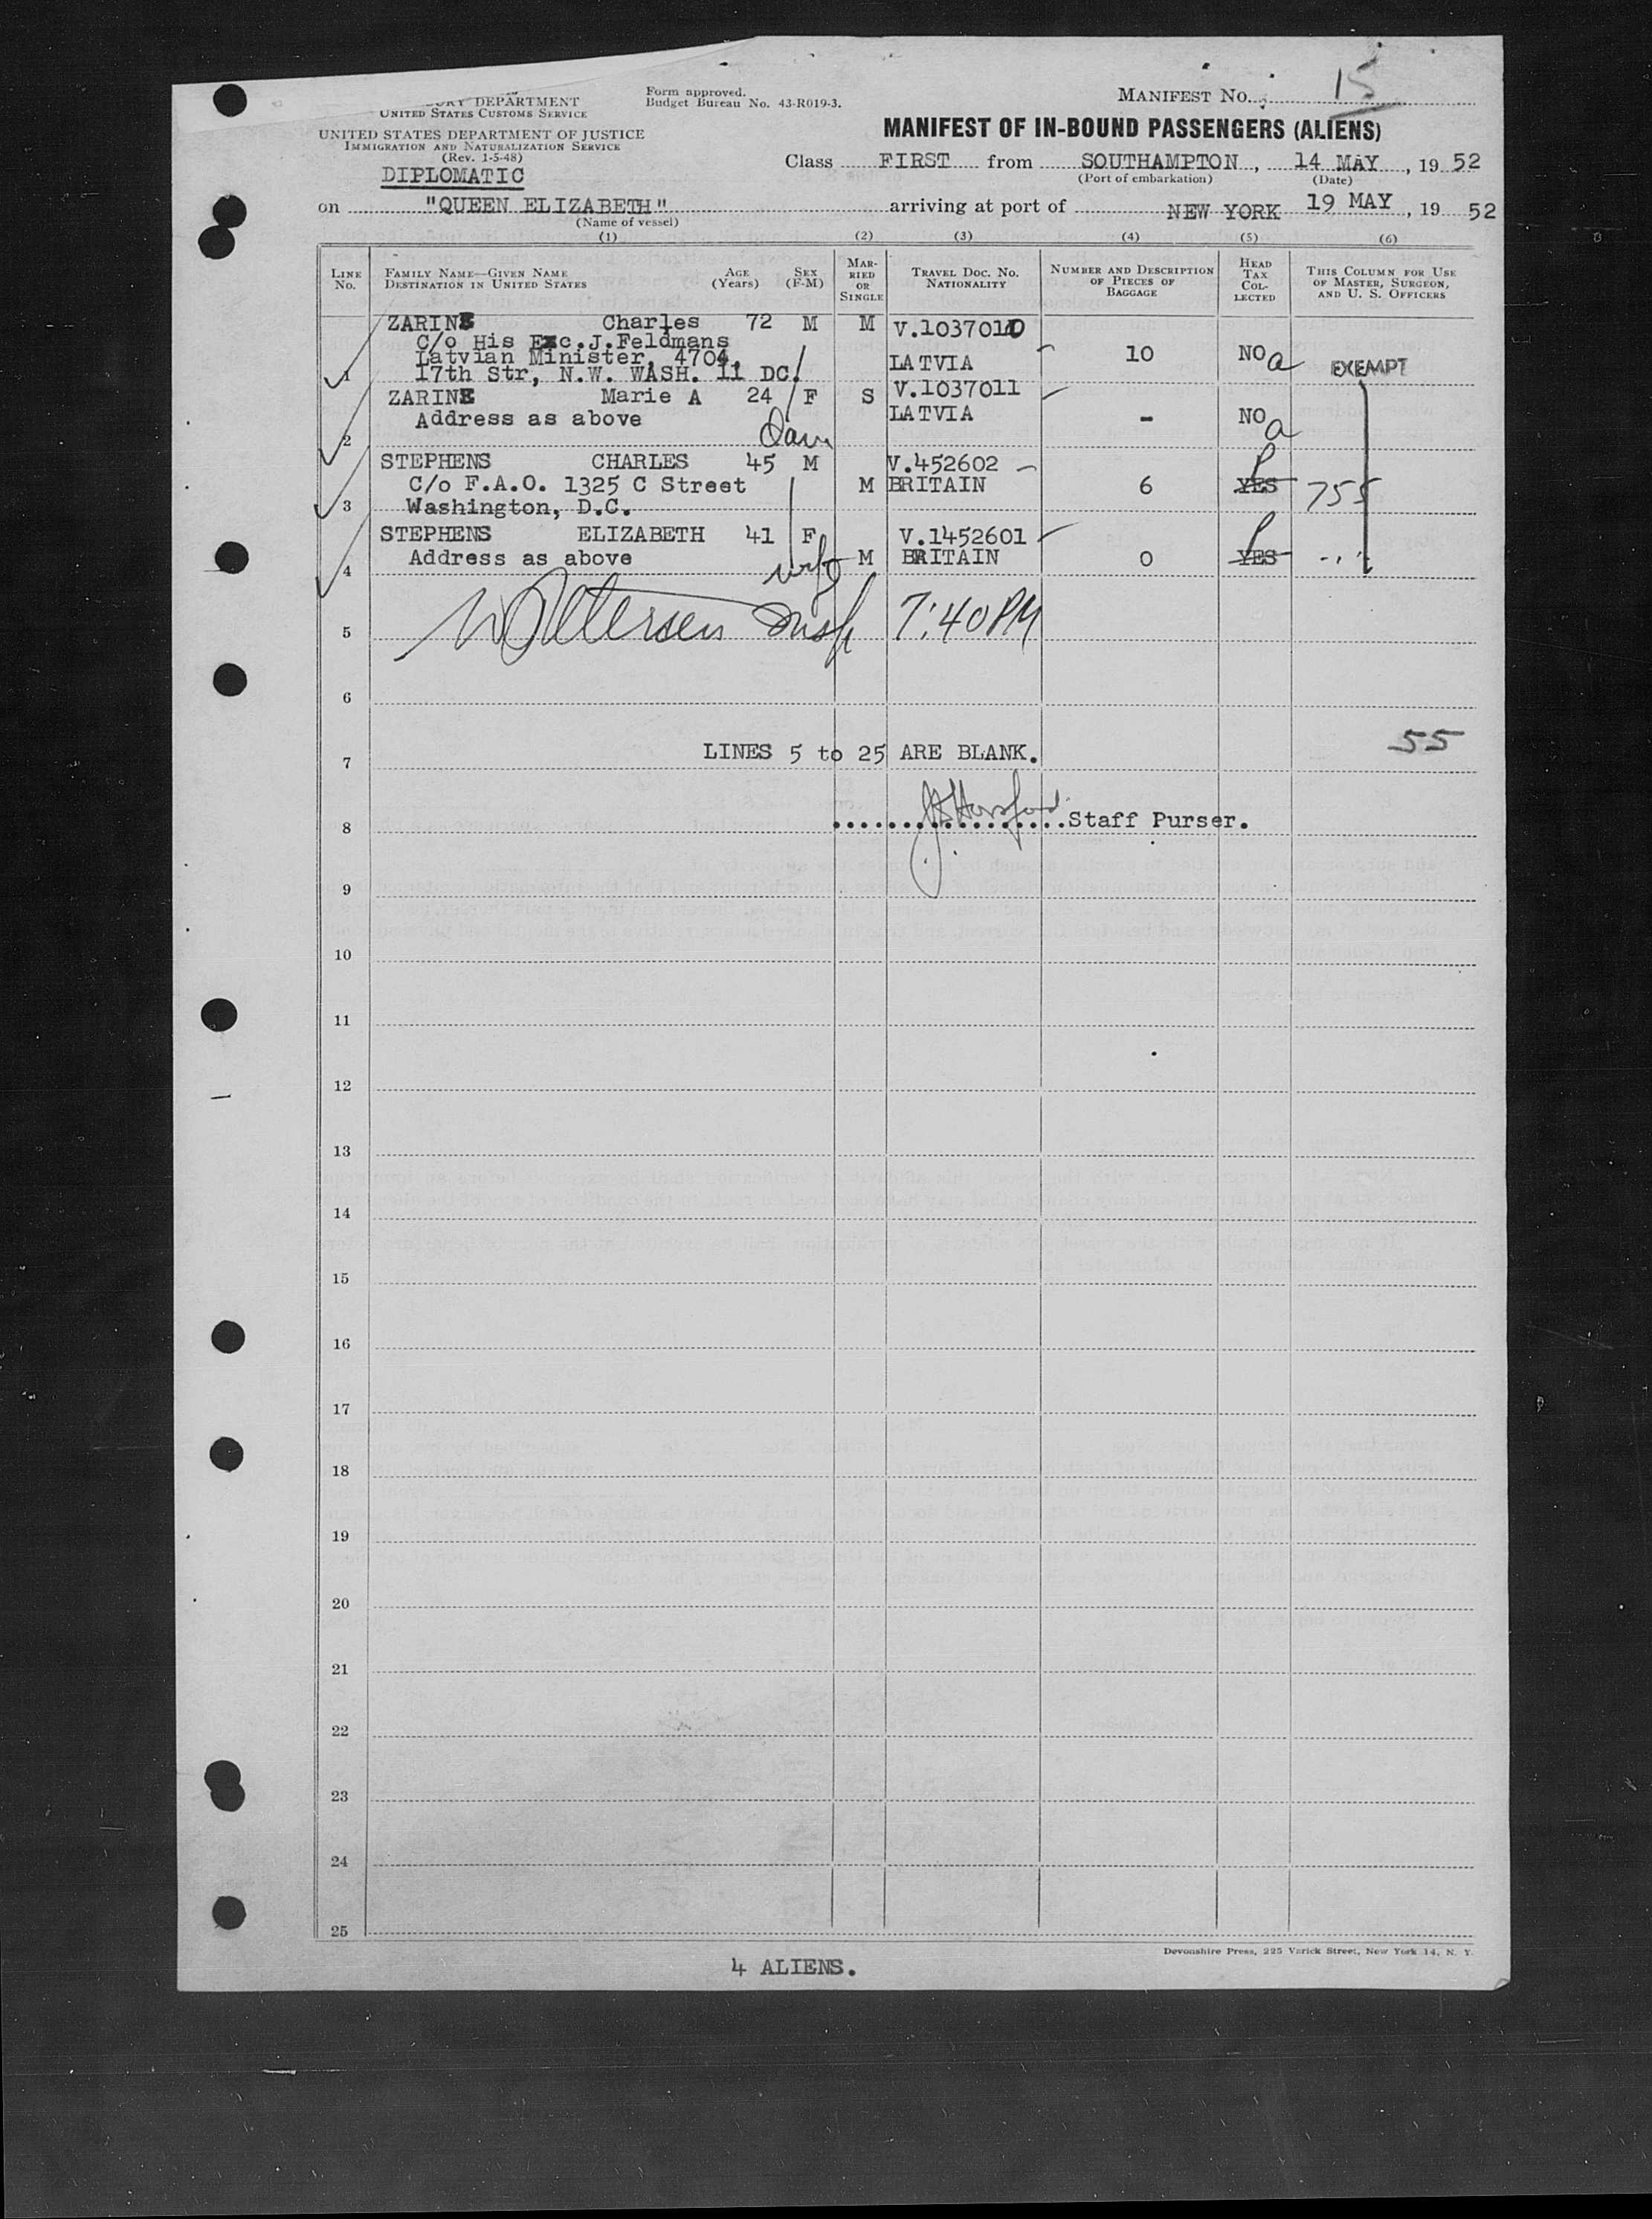 DEPARTMENT
UNITED STATES CUSTOMS SERVICE
UNITED STATES DEPARTMENT OF JUSTICE
IMMIGRATION AND NATURALIZATION SERVICE
(Rev. 1-5-48)
DIPLOMATIC
Form approved.
Budget Bureau No. 43-R019-3.
MANIFEST NO. 15
MANIFEST OF IN-BOUND PASSENGERS (ALIENS)
Class FIRST from SOUTHAMPTON, 14 MAY, 19 52
(Port of embarkation) (Date)
on "QUEEN ELIZABETH" arriving at port of NEW YORK 19 MAY, 19 52
(Name of vessel)
(1) (2) (3) (4) (5) (6)
LINE NO.
FAMILY NAME—GIVEN NAME
DESTINATION IN UNITED STATES
AGE (Years)
SEX (F-M)
MARRIED OR SINGLE
TRAVEL DOC. NO. NATIONALITY
NUMBER AND DESCRIPTION OF PIECES OF BAGGAGE
HEAD TAX COLLECTED
THIS COLUMN FOR USE OF MASTER, SURGEON, AND U. S. OFFICERS
1 ZARINS Charles 72 M M V.1037010
C/o His Exc.J.Feldmans
Latvian Minister, 4704, LATVIA 10 NO a EXEMPT
17th Str, N.W. WASH. 11 DC.
2 ZARINS Marie A 24 F S V.1037011
Address as above LATVIA - NO a
3 STEPHENS CHARLES 45 M V.452602
C/o F.A.O. 1325 C Street M BRITAIN 6 YES 755
Washington, D.C.
4 STEPHENS ELIZABETH 41 F V.1452601
Address as above wife M BRITAIN 0 YES
5 Insp 7:40 PM
6
55
7 LINES 5 to 25 ARE BLANK.
8 Staff Purser.
9
10
11
12
13
14
15
16
17
18
19
20
21
22
23
24
25
Devonshire Press, 225 Varick Street, New York 14, N. Y.
4 ALIENS.